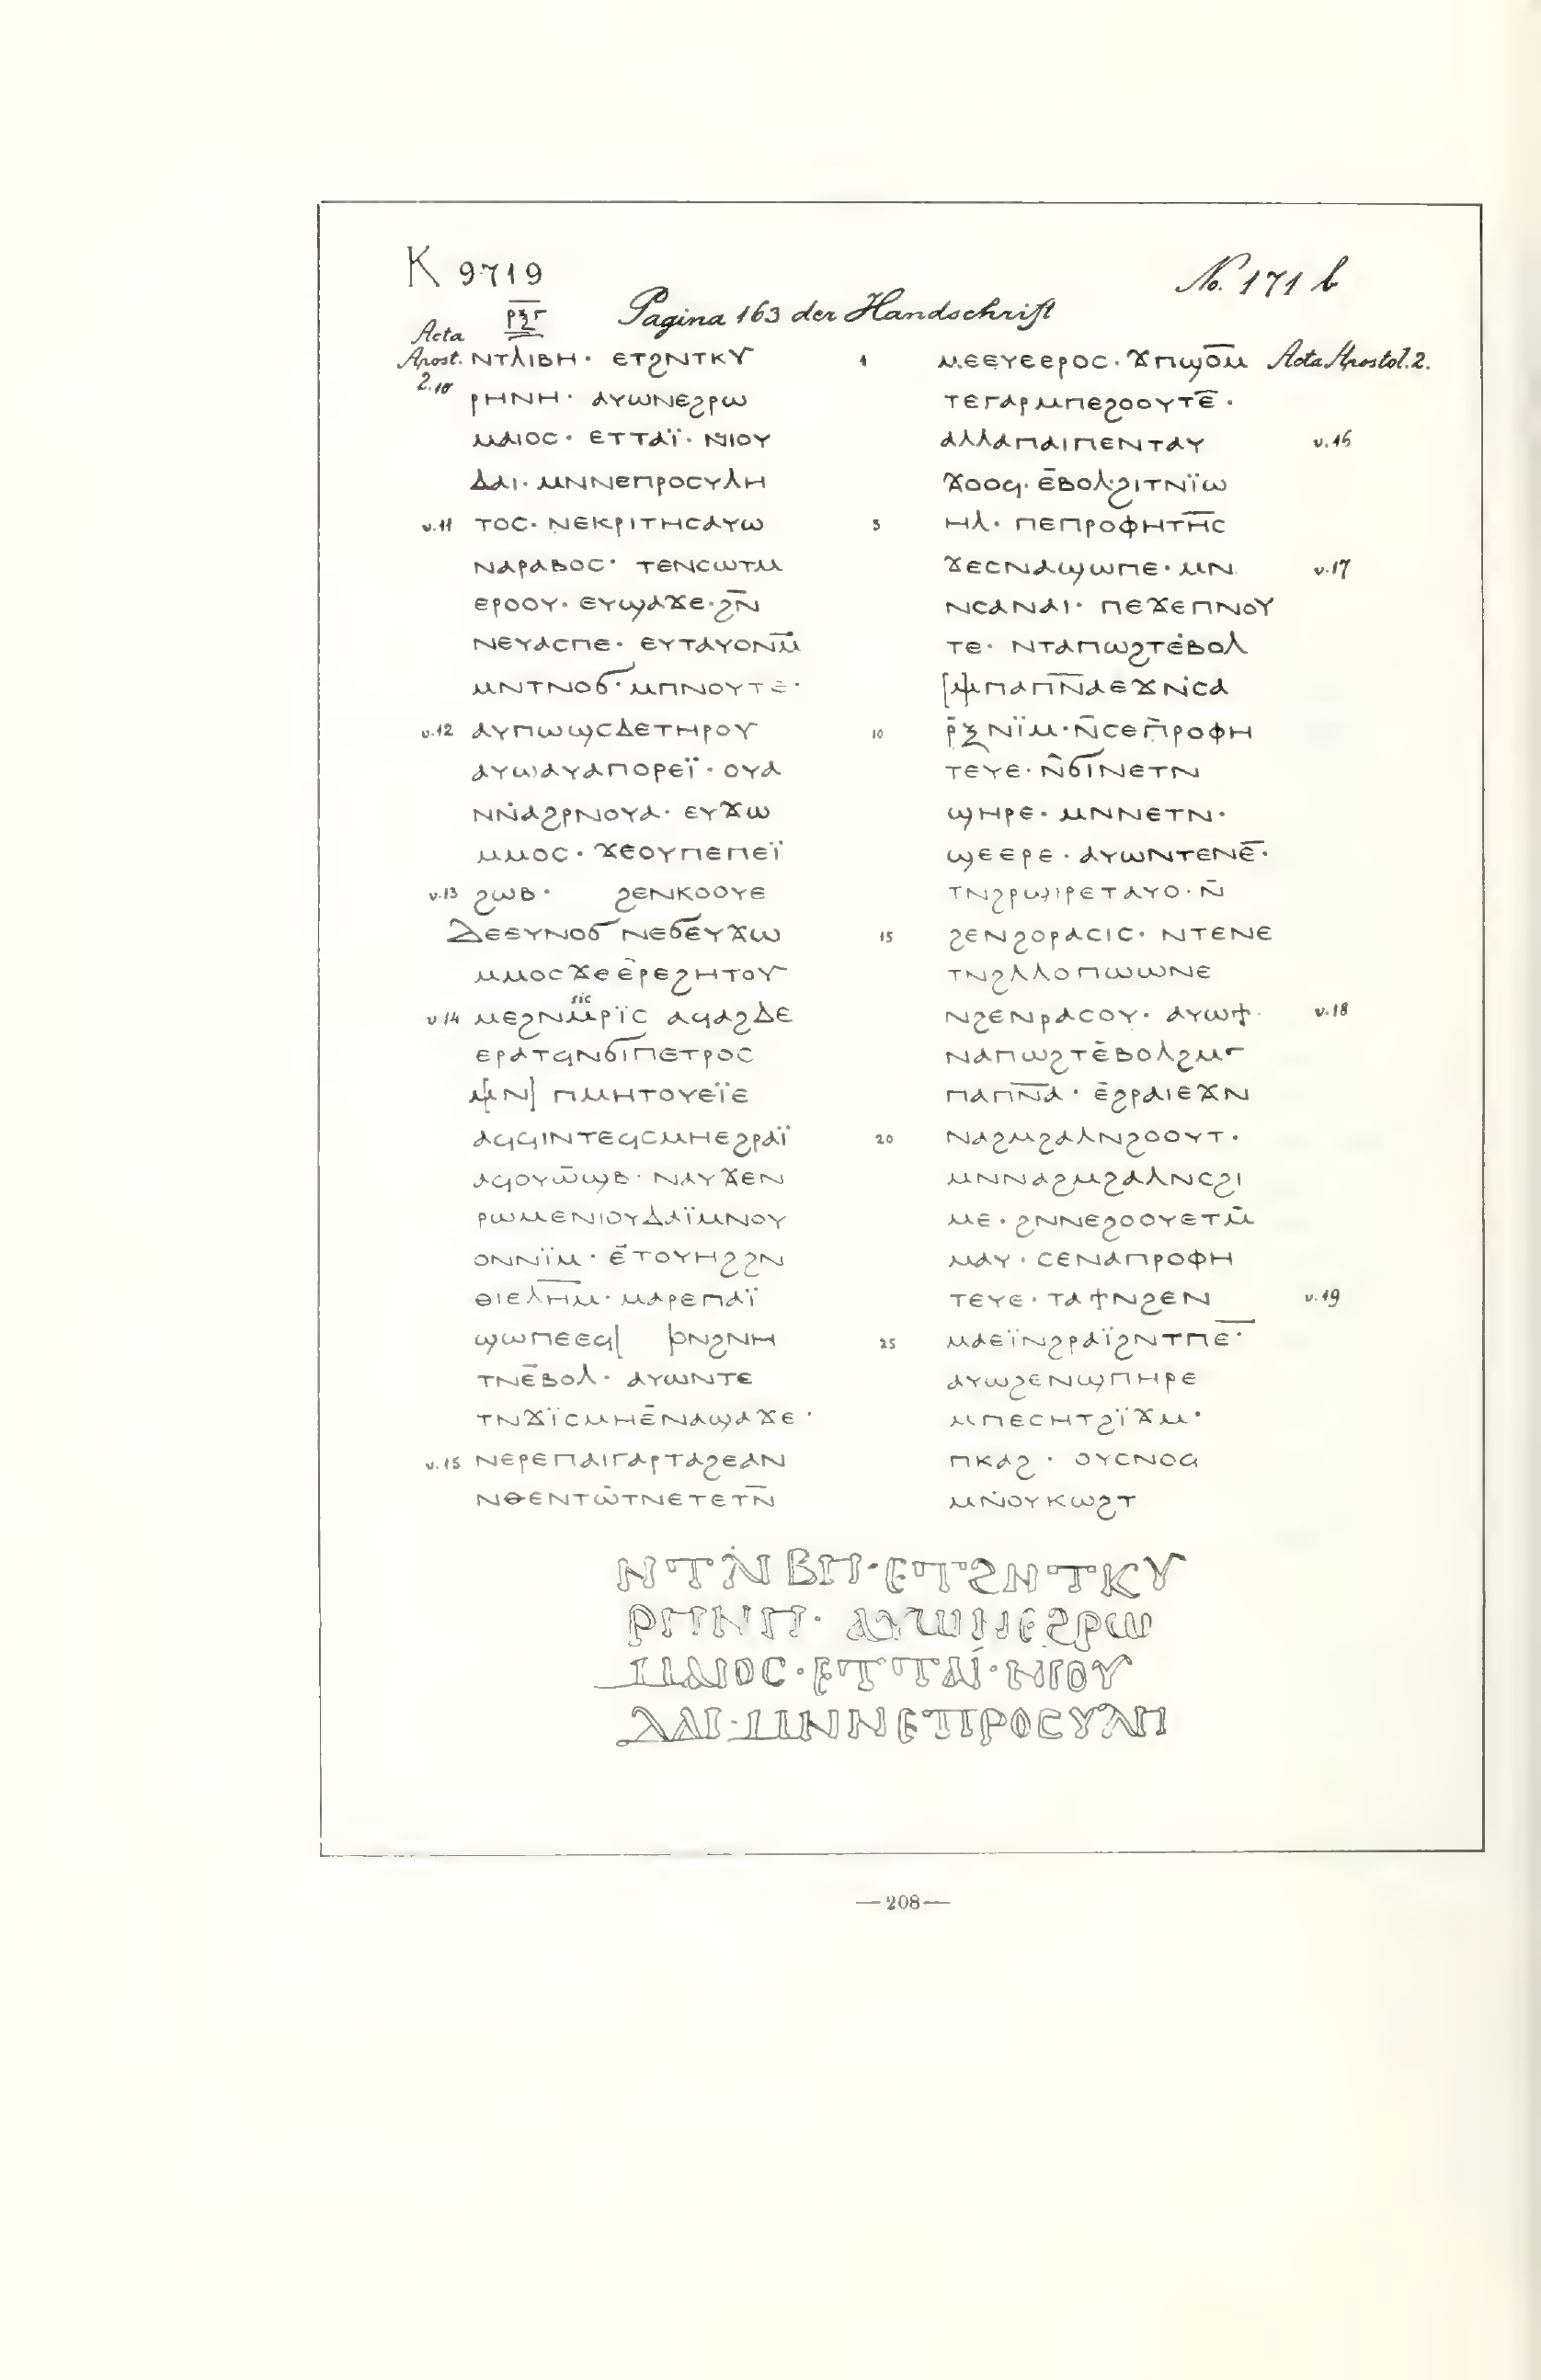 K 9719
No. 171 b
ⲣⲝⲅ
Pagina 163 der Handschrift
Acta Apost. 2.10
ⲛⲧⲗⲓⲃⲏ· ⲉⲧϩⲛⲧⲕⲩ
ⲣⲏⲛⲏ· ⲁⲩⲱⲛⲉϩⲣⲱ
ⲙⲁⲓⲟⲥ· ⲉⲧⲧⲁⲓ̈· ⲛⲓⲟⲩ
ⲇⲁⲓ· ⲙⲛⲛⲉⲡⲣⲟⲥⲩⲗⲏ
v.11 ⲧⲟⲥ· ⲛⲉⲕⲣⲓⲧⲏⲥⲁⲩⲱ
ⲛⲁⲣⲁⲃⲟⲥ· ⲧⲉⲛⲥⲱⲧⲙ
ⲉⲣⲟⲟⲩ· ⲉⲩϣⲁϫⲉ·ϩⲛ̅
ⲛⲉⲩⲁⲥⲡⲉ· ⲉⲩⲧⲁⲩⲟⲛⲙ̅
ⲙⲛⲧⲛⲟϭ·ⲙⲡⲛⲟⲩⲧⲉ·
v.12 ⲁⲩⲡⲱϣⲥⲇⲉⲧⲏⲣⲟⲩ
ⲁⲩⲱⲁⲩⲁⲡⲟⲣⲉⲓ̈· ⲟⲩⲁ
ⲛⲛ̇ⲁϩⲣⲛⲟⲩⲁ· ⲉⲩϫⲱ
ⲙⲙⲟⲥ· ϫⲉⲟⲩⲡⲉⲡⲉⲓ̈
v.13 ϩⲱⲃ· ϩⲉⲛⲕⲟⲟⲩⲉ
ⲇⲉⲉⲩⲛⲟϭⲛⲉϭⲉⲩϫⲱ
ⲙⲙⲟⲥϫⲉⲉ̄ⲣⲉϩⲏⲧⲟⲩ
sic
v.14 ⲙⲉϩⲛⲙ̈ⲣⲓ̈ⲥ ⲁϥⲁϩⲇⲉ
ⲉⲣⲁⲧϥⲛϭⲓⲡⲉⲧⲣⲟⲥ
ⲙ[ⲛ] ⲡⲙⲏⲧⲟⲩⲉⲓ̈ⲉ
ⲁϥϥⲓⲛⲧⲉϥⲥⲙⲏⲉϩⲣⲁⲓ̈
ⲁϥⲟⲩⲱ̄ϣⲃ· ⲛⲁⲩϫⲉⲛ
ⲣⲱⲙⲉⲛⲓⲟⲩⲇⲁⲓ̈ⲙⲛⲟⲩ
ⲟⲛⲛⲓ̈ⲙ· ⲉ̄ⲧⲟⲩⲏϩϩⲛ
ⲑⲓⲉⲗ̅ⲏ̅ⲙ· ⲙⲁⲣⲉⲡⲁⲓ̈
ϣⲱⲡⲉⲉϥ[ ]ⲟⲛϩⲛⲏ
ⲧⲛⲉ̄ⲃⲟⲗ· ⲁⲩⲱⲛⲧⲉ
ⲧⲛϫⲓ̈ⲥⲙⲏⲉ̄ⲛⲁϣⲁϫⲉ·
v.15 ⲛⲉⲣⲉⲡⲁⲓⲅⲁⲣⲧⲁϩⲉⲁⲛ
ⲛⲑⲉⲛⲧⲱ̇ⲧⲛⲉⲧⲉⲧⲛ̅
1 ⲙⲉⲉⲩⲉⲉⲣⲟⲥ· ϫⲡϣⲟ̅ⲙ̅ Acta Apostol. 2.
ⲧⲉⲅⲁⲣⲙⲡⲉϩⲟⲟⲩⲧⲉ̅·
ⲁⲗⲗⲁⲡⲁⲓⲡⲉⲛⲧⲁⲩ v.16
ϫⲟⲟϥ· ⲉ̄ⲃⲟⲗ·ϩⲓⲧⲛⲓ̈ⲱ
5 ⲏⲗ· ⲡⲉⲡⲣⲟⲫⲏⲧⲏ̅ⲥ̅
ϫⲉⲥⲛⲁϣⲱⲡⲉ·ⲙⲛ v.17
ⲛⲥⲁⲛⲁⲓ· ⲡⲉϫⲉⲡⲛⲟⲩ
ⲧⲉ· ⲛⲧⲁⲡⲱϩⲧⲉ̇ⲃⲟⲗ
[ⲙ]ⲡⲁⲡ̅ⲛ̅ⲁⲉϫⲛ̇ⲥⲁ
10 ⲣ̄ⲝⲛⲓ̈ⲙ·ⲛ̄ⲥⲉⲡ̀ⲣⲟⲫⲏ
ⲧⲉⲩⲉ· ⲛ̀ϭⲓⲛⲉⲧⲛ
ϣⲏⲣⲉ· ⲙⲛⲛⲉⲧⲛ·
ϣⲉⲉⲣⲉ· ⲁⲩⲱⲛⲧⲉⲛⲉ̅·
ⲧⲛϩⲣϣⲓⲣⲉⲧⲁⲩⲟ·ⲛ̄
15 ϩⲉⲛϩⲟⲣⲁⲥⲓⲥ· ⲛⲧⲉⲛⲉ
ⲧⲛϩⲗⲗⲟⲡⲱⲱⲛⲉ
ⲛϩⲉⲛⲣⲁⲥⲟⲩ· ⲁⲩⲱϯ· v.18
ⲛⲁⲡⲱϩⲧⲉ̄ⲃⲟⲗϩⲙ
ⲡⲁⲡ̅ⲛ̅ⲁ· ⲉ̄ϩⲣⲁⲓⲉϫⲛ
20 ⲛⲁϩⲙϩⲁⲗⲛϩⲟⲟⲩⲧ·
ⲙⲛⲛⲁϩⲙϩⲁⲗⲛⲥϩⲓ
ⲙⲉ· ϩⲛⲛⲉϩⲟⲟⲩⲉⲧⲙ̄
ⲙⲁⲩ· ⲥⲉⲛⲁⲡⲣⲟⲫⲏ
ⲧⲉⲩⲉ· ⲧⲁϯⲛϩⲉⲛ v.19
25 ⲙⲁⲉⲓ̈ⲛϩⲣⲁⲓ̈ϩⲛⲧⲡⲉ̅·
ⲁⲩⲱϩⲉⲛϣⲡⲏⲣⲉ
ⲙⲡⲉⲥⲏⲧϩⲓ̈ϫⲙ·
ⲡⲕⲁϩ· ⲟⲩⲥⲛⲟϥ
ⲙⲛ̇ⲟⲩⲕⲱϩⲧ
ⲛⲧⲗⲓⲃⲏ·ⲉⲧϩⲛⲧⲕⲩ
ⲣⲏⲛⲏ· ⲁⲩⲱⲛⲉϩⲣⲱ
ⲙⲁⲓⲟⲥ·ⲉⲧⲧⲁⲓ̈·ⲛⲓⲟⲩ
ⲇⲁⲓ·ⲙⲛⲛⲉⲡⲣⲟⲥⲩⲗⲏ
—208—